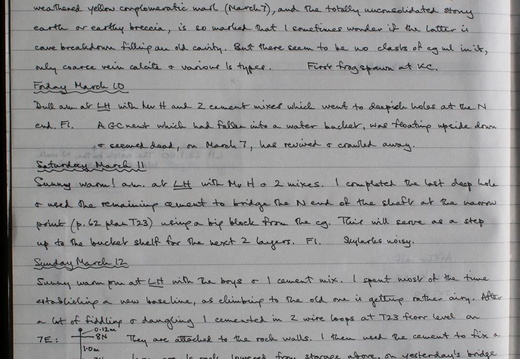 weathered yellow conglomeratic marl (March 7), and the totally unconsolidated stony
earth or earthy breccia, is so marked that I sometimes wonder if the latter is
cave breakdown filling an old cavity. But there seem to be no clasts of cg ml in it,
only coarse vein calcite & various ls types. First frogspawn at KC.
Friday March 10
Dull am at LH with Mr H and 2 cement mixes which went to deepish holes at the N
end. F1. A GC newt which had fallen into a water bucket, was floating upside down
& seemed dead, on March 7, has revived & crawled away.
Saturday March 11
Sunny warm 1 am. at LH with Mr H & 2 mixes. I completed the last deep hole
& used the remaining cement to bridge the N end of the shaft at the narrow
point (p.62 plan T23) using a big block from the cg. This will serve as a step
up to the bucket shelf for the next 2 layers. F1. Skylarks noisy.
Sunday March 12
Sunny warm pm at LH with the boys & 1 cement mix. I spent most of the time
establishing a new baseline, as climbing to the old one is getting rather airy. After
a lot of fiddling & dangling I cemented in 2 wire loops at T23 floor level on
7E: 0.12m They are attached to the rock walls. I then used the cement to fix a
8N
1.0m
lowered from storage above, on yesterday's bridge